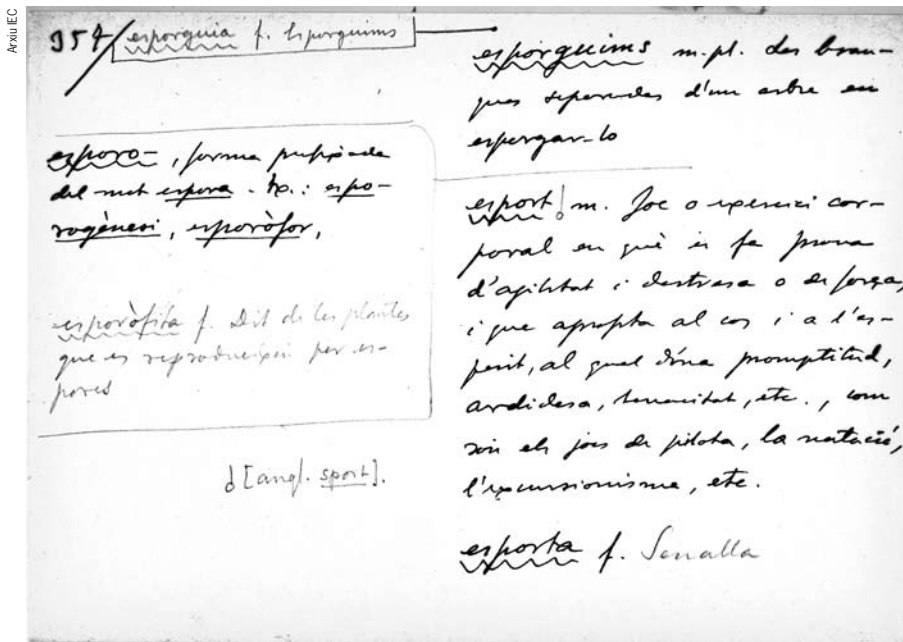 Arxiu IEC
954
esporguia f. Esporguims
esporo-, forma prefixada
del mot espora. Ex.: espo-
rogènesi, esporòfor,
esporòfita f. Dit de les plantes
que es reprodueixen per es-
pores
d[angl. sport].
esporguims m.pl. des bran-
ques separades d'un arbre en
esporgar-lo
esport m. Joc o exercici cor-
poral en què es fa prova
d'agilitat i destresa o de força,
i que aprofita al cos i a l'es-
perit, al qual dóna promptitud,
ardidesa, tenacitat, etc., com
són els jocs de pilota, la natació,
l'excursionisme, etc.
esporta f. Senalla